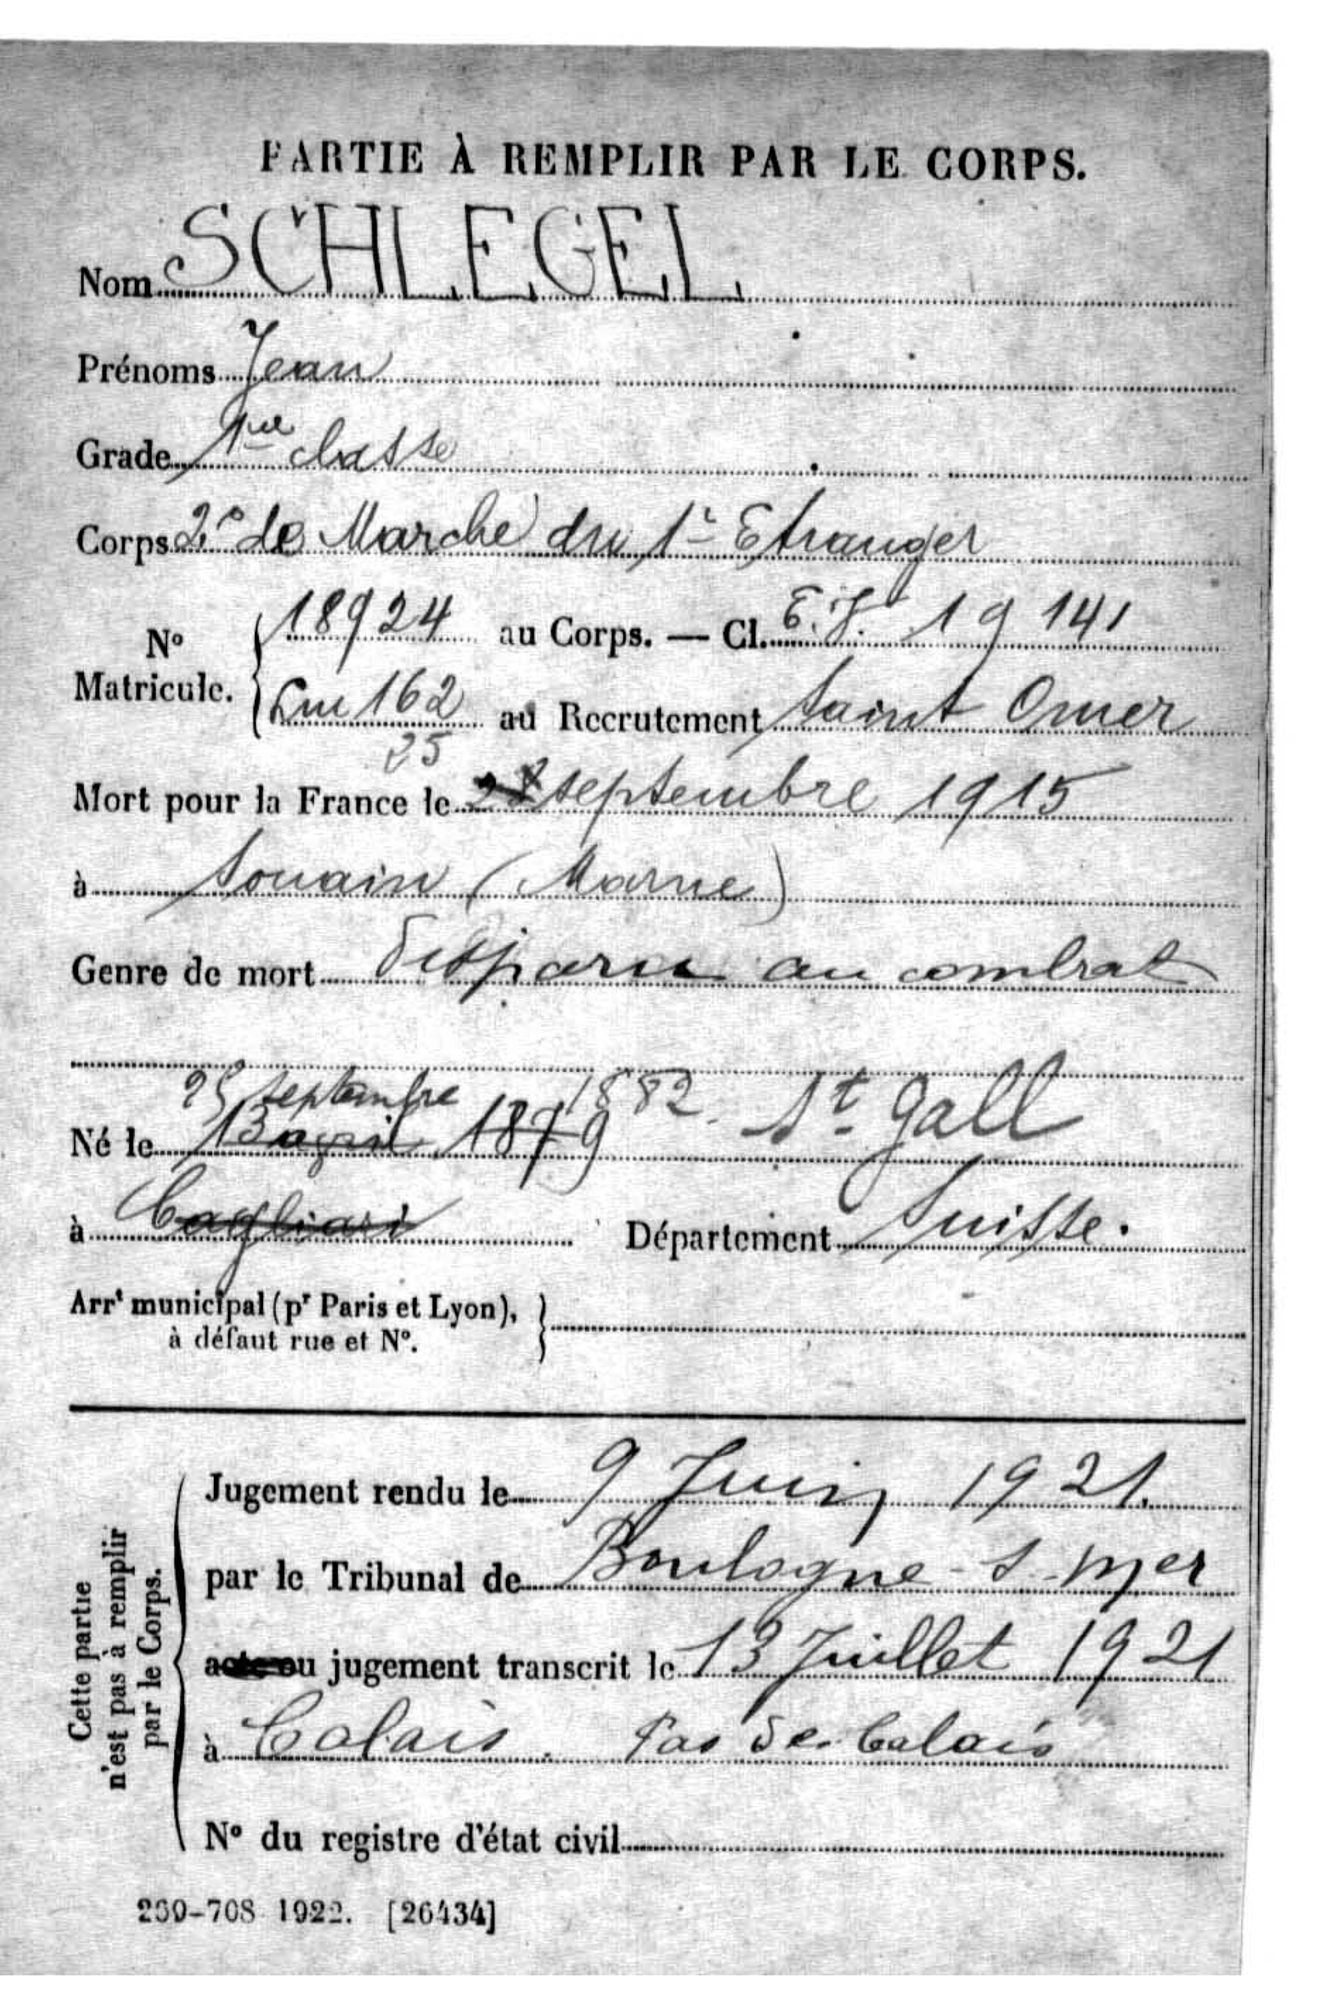 PARTIE À REMPLIR PAR LE CORPS.
Nom SCHLEGEL
Prénoms Jean
Grade 1re classe
Corps 2e de Marche du 1r Etranger
N° Matricule. 18924 au Corps. — Cl. 19141
162 au Recrutement Saint Omer
25
Mort pour la France le 28 septembre 1915
à Souain (Marne)
Genre de mort Disparu au combat
25 septembre 1882. St Gall
Né le 13 avril 1879
à Cagliari Département Suisse.
Arrt municipal (pr Paris et Lyon),
à défaut rue et N°.
Cette partie
n'est pas à remplir
par le Corps.
Jugement rendu le 9 Juin 1921.
par le Tribunal de Boulogne-s-mer
acte ou jugement transcrit le 13 Juillet 1921
à Calais. Pas de Calais
N° du registre d'état civil
269-708 1922. [26434]